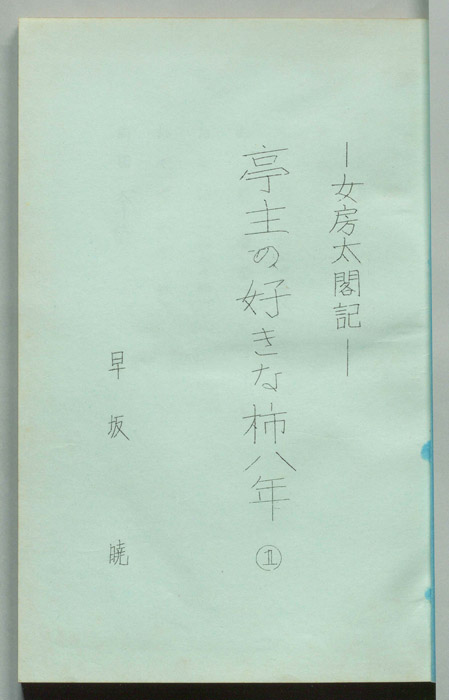 ―女房太閤記―
亭主の好きな柿八年 ①
早坂 暁